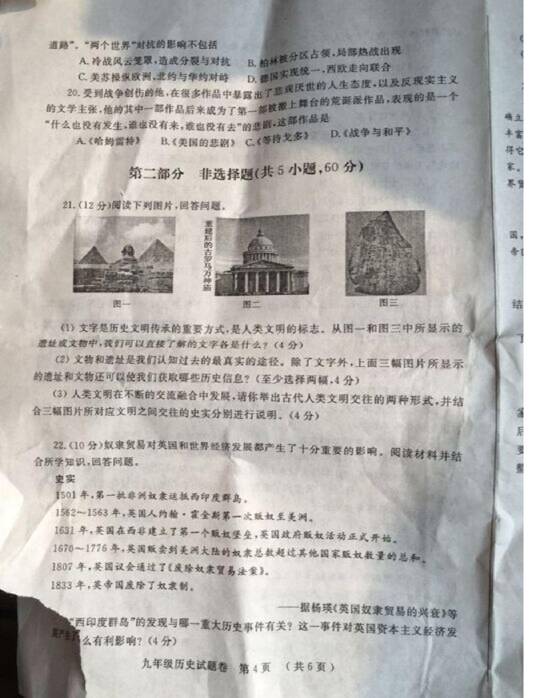 道路”。“两个世界”对抗的影响不包括
A.冷战风云笼罩,造成分裂与对抗 B.柏林被分区占领,局部热战出现
C.美苏操纵欧洲,北约与华约对峙 D.德国实现统一,西欧走向联合
20.受到战争创伤的他,在很多作品中暴露出了悲观厌世的人生态度,以及反现实主义
的文学主张,他的其中一部作品后来成为了第一部被搬上舞台的荒诞派作品,表现的是一个
“什么也没有发生,谁也没有来,谁也没有去”的悲剧,这部作品是
A.《哈姆雷特》 B.《美国的悲剧》 C.《等待戈多》 D.《战争与和平》
第二部分 非选择题(共5小题,60分)
21.(12分)阅读下列图片,回答问题。
重建后的古罗马万神庙
图一 图二 图三
(1)文字是历史文明传承的重要方式,是人类文明的标志。从图一和图三中所显示的
遗址或文物中,我们可以直接了解的文字各是什么?(4分)
(2)文物和遗址是我们认知过去的最真实的途径。除了文字外,上面三幅图片所显示
的遗址和文物还可以使我们获取哪些历史信息?(至少选择两幅,4分)
(3)人类文明在不断的交流融合中发展,请你举出古代人类文明交往的两种形式,并结
合三幅图片所对应文明之间交往的史实分别进行说明。(4分)
22.(10分)奴隶贸易对英国和世界经济发展都产生了十分重要的影响。阅读材料并结
合所学知识,回答问题。
史实
1501年,第一批非洲奴隶运抵西印度群岛。
1562~1563年,英国人约翰·霍金斯第一次贩奴至美洲。
1631年,英国在西非建立了第一个贩奴堡垒,英国政府贩奴活动正式开始。
1670~1776年,英国贩卖到美洲大陆的奴隶总数超过其他国家贩奴数量的总和。
1807年,英国议会通过了《废除奴隶贸易法案》。
1833年,英帝国废除了奴隶制。
——据杨瑛《英国奴隶贸易的兴衰》等
“西印度群岛”的发现与哪一重大历史事件有关?这一事件对英国资本主义经济发
么有利影响?(4分)
九年级历史试题卷 第4页 (共6页)